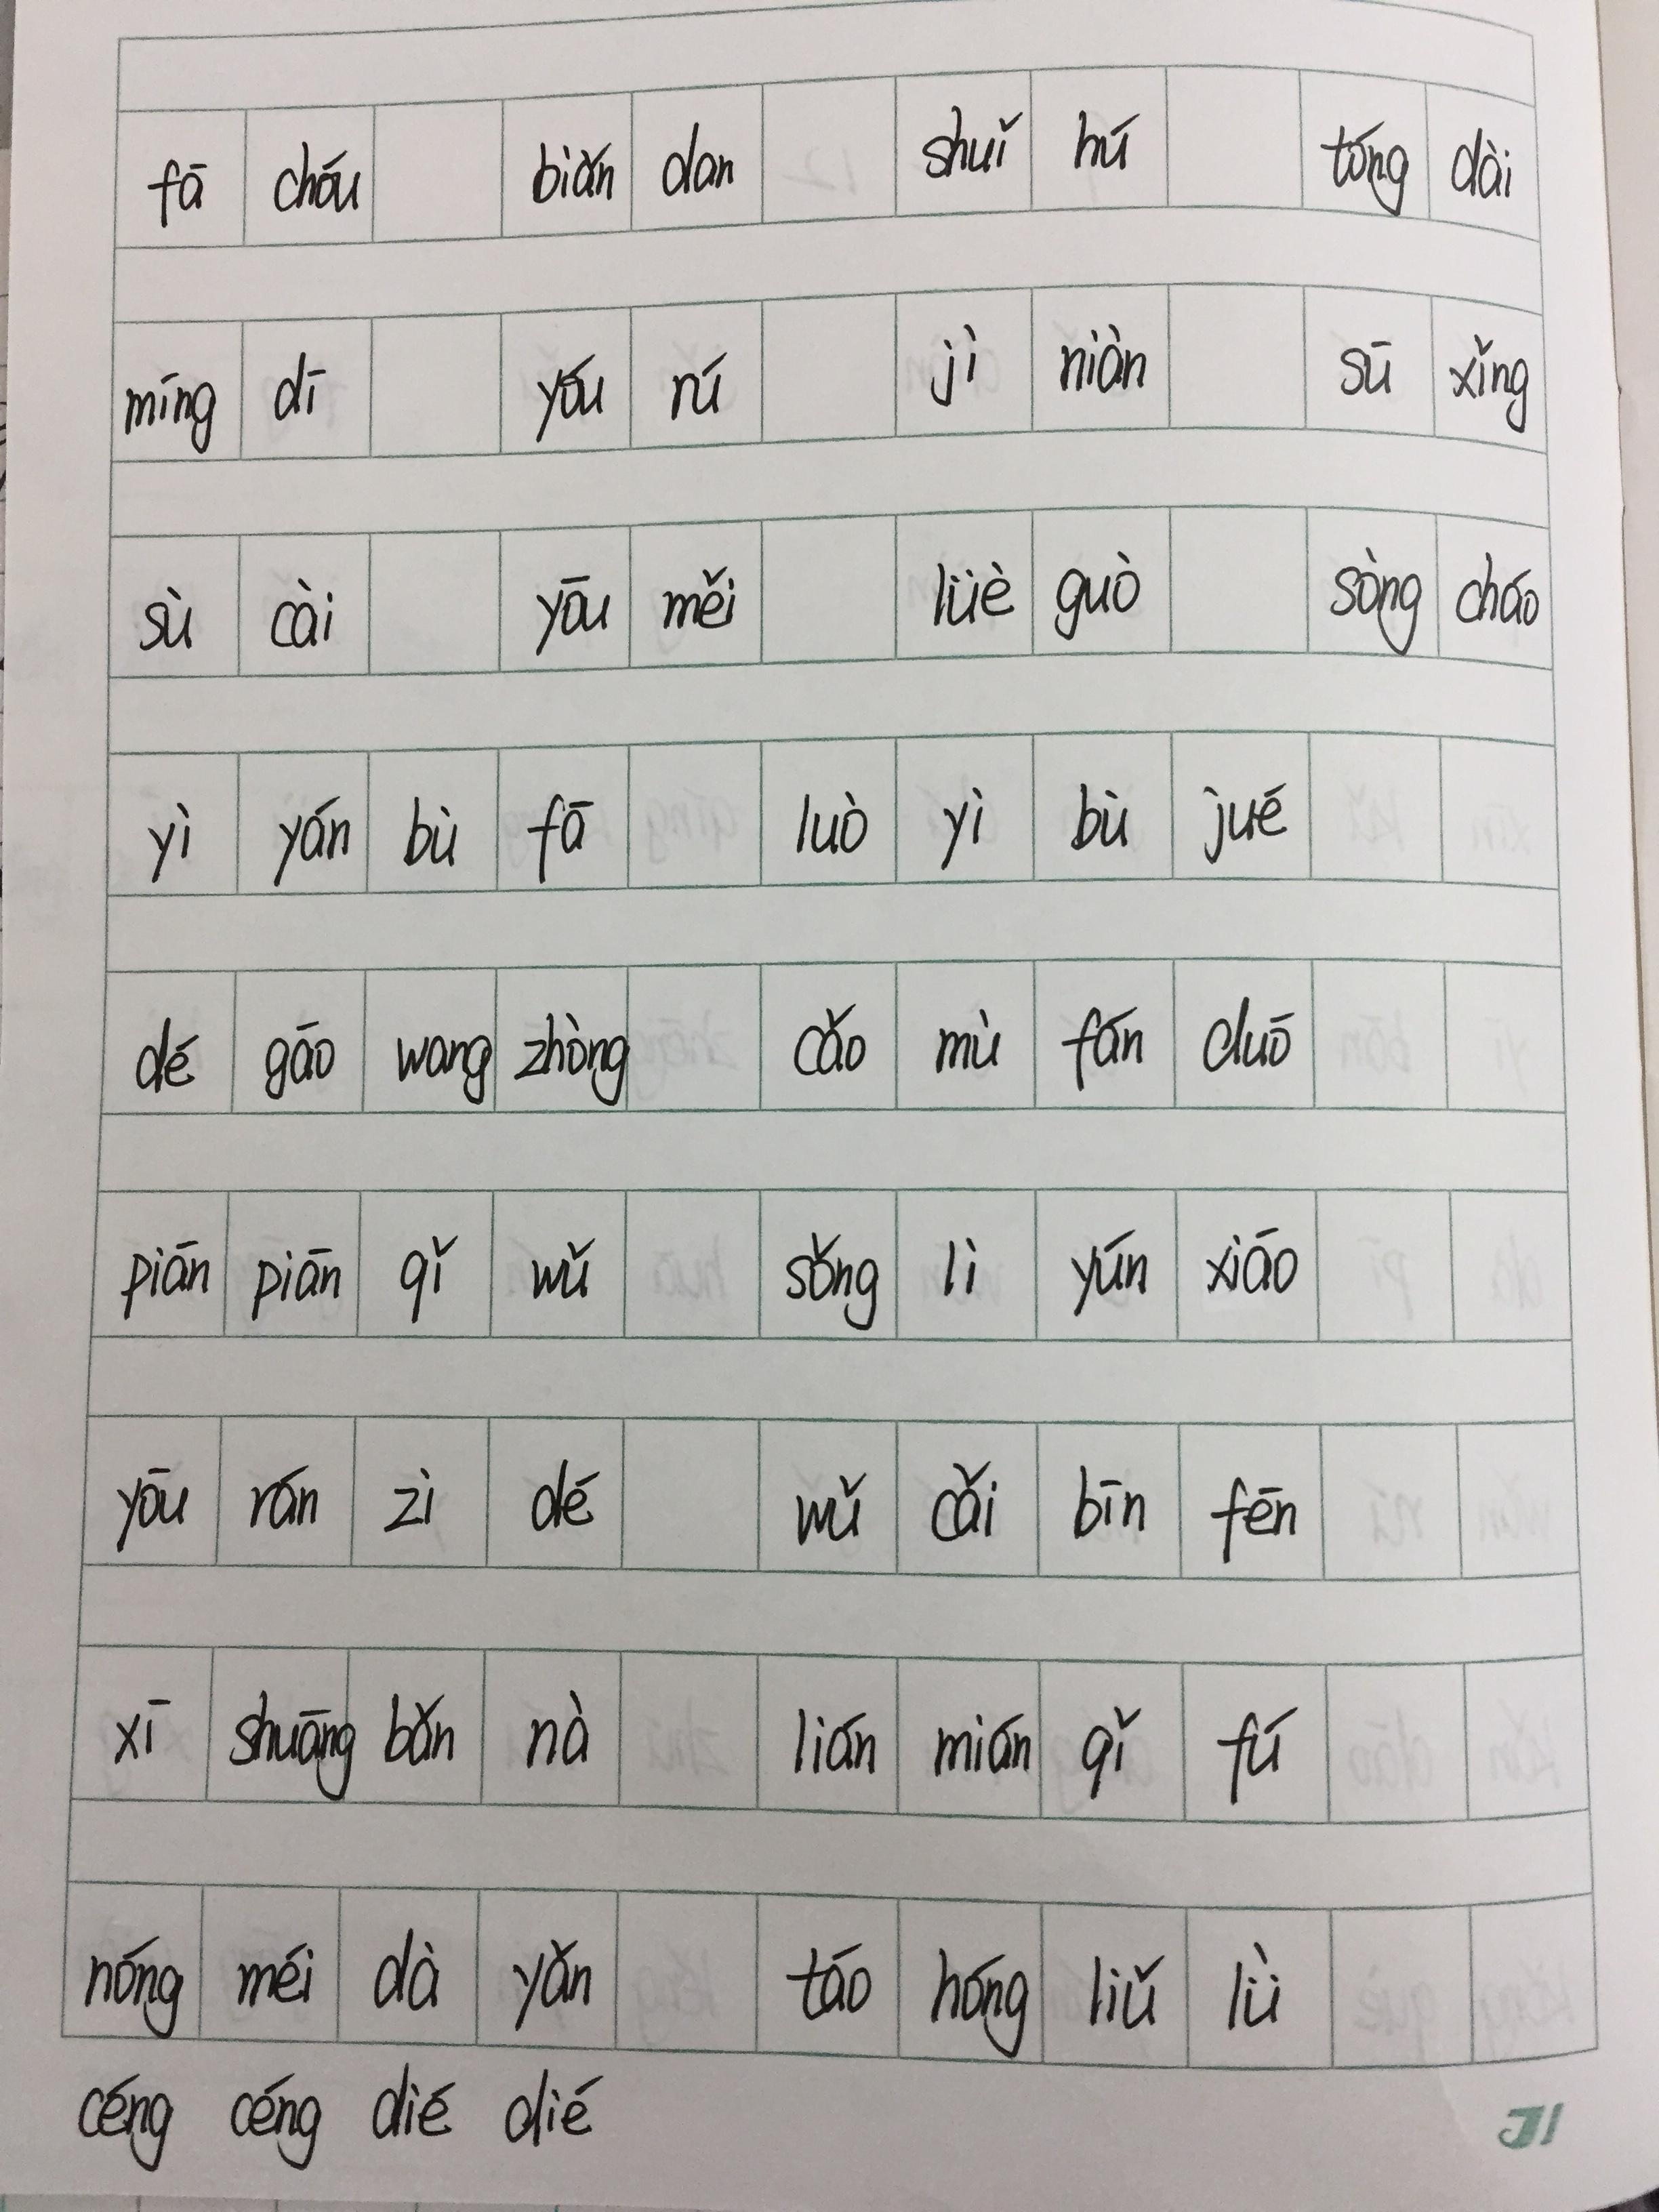 fā chóu biǎn dan shuǐ hú tóng dài
míng dī yóu rú jì niàn sū xǐng
sù cài yōu měi lüè guò sòng cháo
yì yán bù fā luò yì bù jué
dé gāo wang zhòng cǎo mù fán duō
piān piān qǐ wǔ sǒng lì yún xiāo
yōu rán zì dé wǔ cǎi bīn fēn
xī shuāng bǎn nà lián mián qǐ fú
nóng méi dà yǎn táo hóng liǔ lǜ
céng céng dié dié